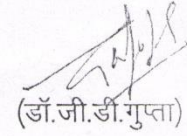 (डॉ.जी.डी.गुप्ता)